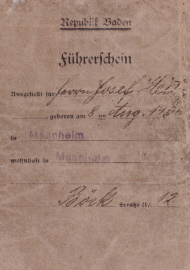 Republik Baden
Führerschein
Ausgestellt für Herrn Josef
geboren am 8. Aug.
in Mannheim
wohnhaft in Mannheim
Böck Straße Nr. 12